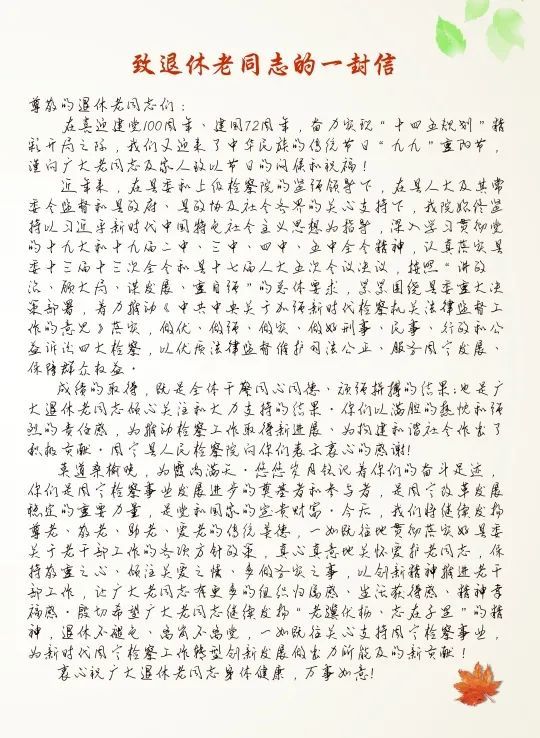 致退休老同志的一封信
尊敬的退休老同志们：
在喜迎建党100周年、建国72周年，奋力实现“十四五规划”精
彩开局之际，我们又迎来了中华民族的传统节日“九九”重阳节，
谨向广大老同志及家人致以节日的问候和祝福！
近年来，在县委和上级检察院的坚强领导下，在县人大及其常
委会监督和县政府、县政协及社会各界的关心支持下，我院始终坚
持以习近平新时代中国特色社会主义思想为指导，深入学习贯彻党
的十九大和十九届二中、三中、四中、五中全会精神，认真落实县
委十三届十三次全会和县十七届人大五次会议决议，按照“讲政
治、顾大局、谋发展、重自强”的总体要求，紧紧围绕县委重大决
策部署，着力推动《中共中央关于加强新时代检察机关法律监督工
作的意见》落实，做优、做强、做实、做好刑事、民事、行政和公
益诉讼四大检察，以优质法律监督维护司法公正、服务周宁发展、
保障群众权益。
成绩的取得，既是全体干警同心同德、顽强拼搏的结果；也是广
大退休老同志倾心关注和大力支持的结果。你们以满腔的热忱和强
烈的责任感，为推动检察工作取得新进展、为构建和谐社会作出了
积极贡献。周宁县人民检察院向你们表示衷心的感谢！
莫道桑榆晚，为霞尚满天。悠悠岁月铭记着你们的奋斗足迹，
你们是周宁检察事业发展进步的奠基者和参与者，是周宁改革发展
稳定的重要力量，是党和国家的宝贵财富。今后，我们将继续发扬
尊老、敬老、助老、爱老的传统美德，一如既往地贯彻落实好县委
关于老干部工作的各项方针政策，真心真意地关怀爱护老同志，保
持敬重之心、倾注关爱之情、多做务实之事，以创新精神推进老干
部工作，让广大老同志有更多的组织归属感、生活获得感、精神幸
福感。殷切希望广大老同志继续发扬“老骥伏枥、志在千里”的精
神；退休不褪色、离岗不离党，一如既往关心支持周宁检察事业，
为新时代周宁检察工作转型创新发展做出力所能及的新贡献！
衷心祝广大退休老同志身体健康，万事如意！